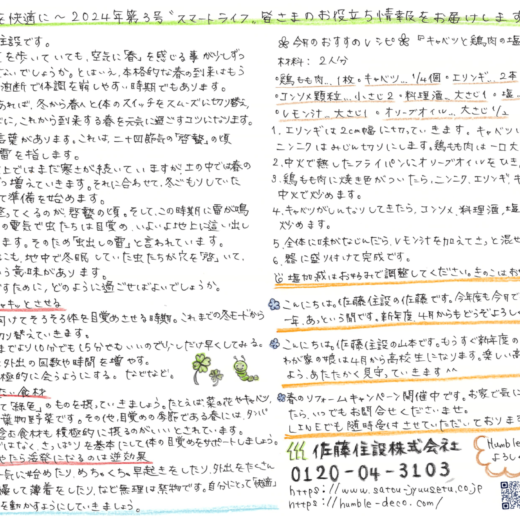 を快適に〜2024年第3号"スマートライフ"皆さまのお役立ち情報をお届けします
設です。
を歩いていても、空気に「春」を感じる事が少しずつ
でしょうか。とはいえ、本格的な春の到来はもう
油断で体調を崩しやすい時期でもあります。
あれば、冬から春へと体のスイッチをスムーズに切り替え、
に、これから到来する春を元気に過ごすコツになります。
言葉があります。これは、二十四節気の「啓蟄」の頃
雷を指します。
上ではまだ寒さが続いていますが、土の中では春の
増えていきます。それに合わせて、冬ごもりしていた
準備を始めます。
てくるのが、啓蟄の頃。そして、この時期に雷が鳴
の電気で虫たちは目覚め、いよいよ地上に這い出し
ます。そのため「虫出しの雷」と言われています。
にも、地中で冬眠していた虫たちが穴を「啓」いて、
う意味があります。
すために、どのように過ごせばよいでしょうか。
キッとさせる
向けてそろそろ体を目覚めさせる時期。これまでの冬モードから
切り替えていきます。
までより10分でも15分でもいいので少しだけ早くしてみる。
外出の回数や時間を増やす。
極的に会うようにする。などなど。
たい食材
て「緑色」のものを摂っていきましょう。たとえば、菜の花やキャベツ、
葉物野菜です。その他、目覚めの季節である春には、タンパ
含む食材も積極的に摂るのがいいとされています。
ではなく、さっぱりを基本にして体の目覚めをサポートしましょう。
やたら活発になるのは逆効果
気に始めたり、めちゃくちゃ早起きをしたり、外出をたくさん
して薄着をしたり、など無理は禁物です。自分にとって「適度」
を動かすようにしていきましょう。
今月のおすすめレシピ『キャベツと鶏肉の塩
材料：2人分
・鶏もも肉…1枚・キャベツ…1/4個・エリンギ…2本
・コンソメ顆粒…小さじ2・料理酒…大さじ1・塩
・レモン汁…大さじ1・オリーブオイル…大さじ1/2
1.エリンギは2cm幅に切っていきます。キャベツ
ニンニクはみじん切りにします。鶏もも肉は一口大
2.中火で熱したフライパンにオリーブオイルをひき
3.鶏もも肉に焼き色がついたら、ニンニク、エリンギ、キ
中火で炒めます。
4.キャベツがしんなりしてきたら、コンソメ、料理酒、塩
炒めます。
5.全体に味がなじんだら、レモン汁を加えてさっと混ぜ
6.器に盛り付けて完成です。
塩加減はお好みで調整してください。きのこはお好
こんにちは。佐藤住設の佐藤です。今年度も今月で
一年、あっという間です。新年度、4月からもどうぞよろし
こんにちは。佐藤住設の山本です。もうすぐ新年度の
わが家の娘は4月から高校生になります。楽しい高
よう、あたたかく見守っていきます^^
春のリフォームキャンペーン開催中です。お家で気に
たら、いつでもお問合せくださいませ。
LINEでも随時受付させていただいております
佐藤住設株式会社
0120-04-3103
https://www.satou-jyuusetu.co.jp
https://humble-deco.com/
Humble
よろし